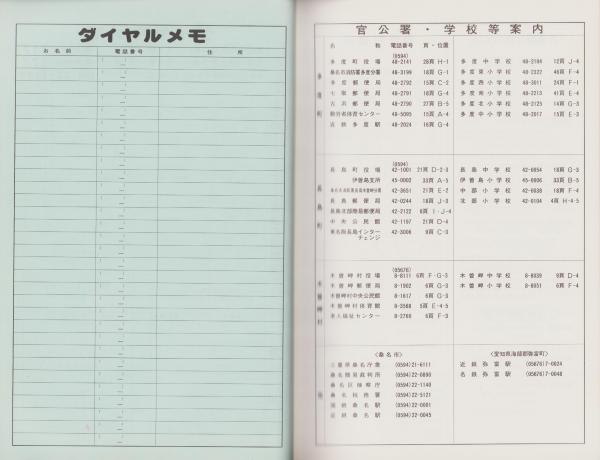 ダイヤルメモ
お名前 電話番号 住所
官公署・学校等案内
名称 電話番号 頁・位置
(0594)
多度町役場 48-2141 28頁 H-1 多度中学校 48-2104 12頁 J-4
桑名市消防署多度分署 48-3199 18頁 G-1 多度東小学校 48-2322 46頁 F-4
多度郵便局 48-2792 15頁 C-2 多度西小学校 48-3011 24頁 F-1
七取郵便局 48-2791 18頁 G-4 多度南小学校 48-2213 41頁 E-4
古浜郵便局 48-2790 27頁 B-5 多度北小学校 48-2125 14頁 G-3
勤労者体育センター 48-5095 15頁 A-4 多度中小学校 48-2017 15頁 E-3
近鉄多度駅 48-2024 16頁 G-4
多度町
(0594)
長島町役場 42-1001 21頁 D-2・3 長島中学校 42-0054 18頁 G-3
伊曽島支所 45-0002 33頁 A-5 伊曽島小学校 45-0006 33頁 B-5
42-3651 21頁 E-2 中部小学校 42-0038 18頁 F-4
長島郵便局 42-0244 18頁 J-3 北部小学校 42-0104 4頁 H-4・5
長島北部簡易郵便局 42-2122 8頁 I・J-4
中央公民館 42-1197 21頁 D-4
東名阪長島インターチェンジ 42-3006 9頁 C-3
長島町
(05676)
木曽岬村役場 8-8111 6頁 F・G-3 木曽岬中学校 8-8039 9頁 D-4
木曽岬郵便局 8-1902 6頁 G-3 木曽岬小学校 8-8051 6頁 F-4
木曽岬村中央公民館 8-1617 6頁 G-3
木曽岬村体育館 8-3588 5頁 E-4・5
老人福祉センター 8-2760 6頁 F-3
木曽岬村
〈桑名市〉 〈愛知県海部郡弥富町〉
三重県桑名庁舎 (0594)21-6111 近鉄弥富駅 (05676)7-0024
桑名簡易裁判所 (0594)22-0890 名鉄弥富駅 (05676)7-0048
桑名区検察庁 (0594)22-1140
桑名税務署 (0594)22-5121
国鉄桑名駅 (0594)22-0001
近鉄桑名駅 (0594)22-0045